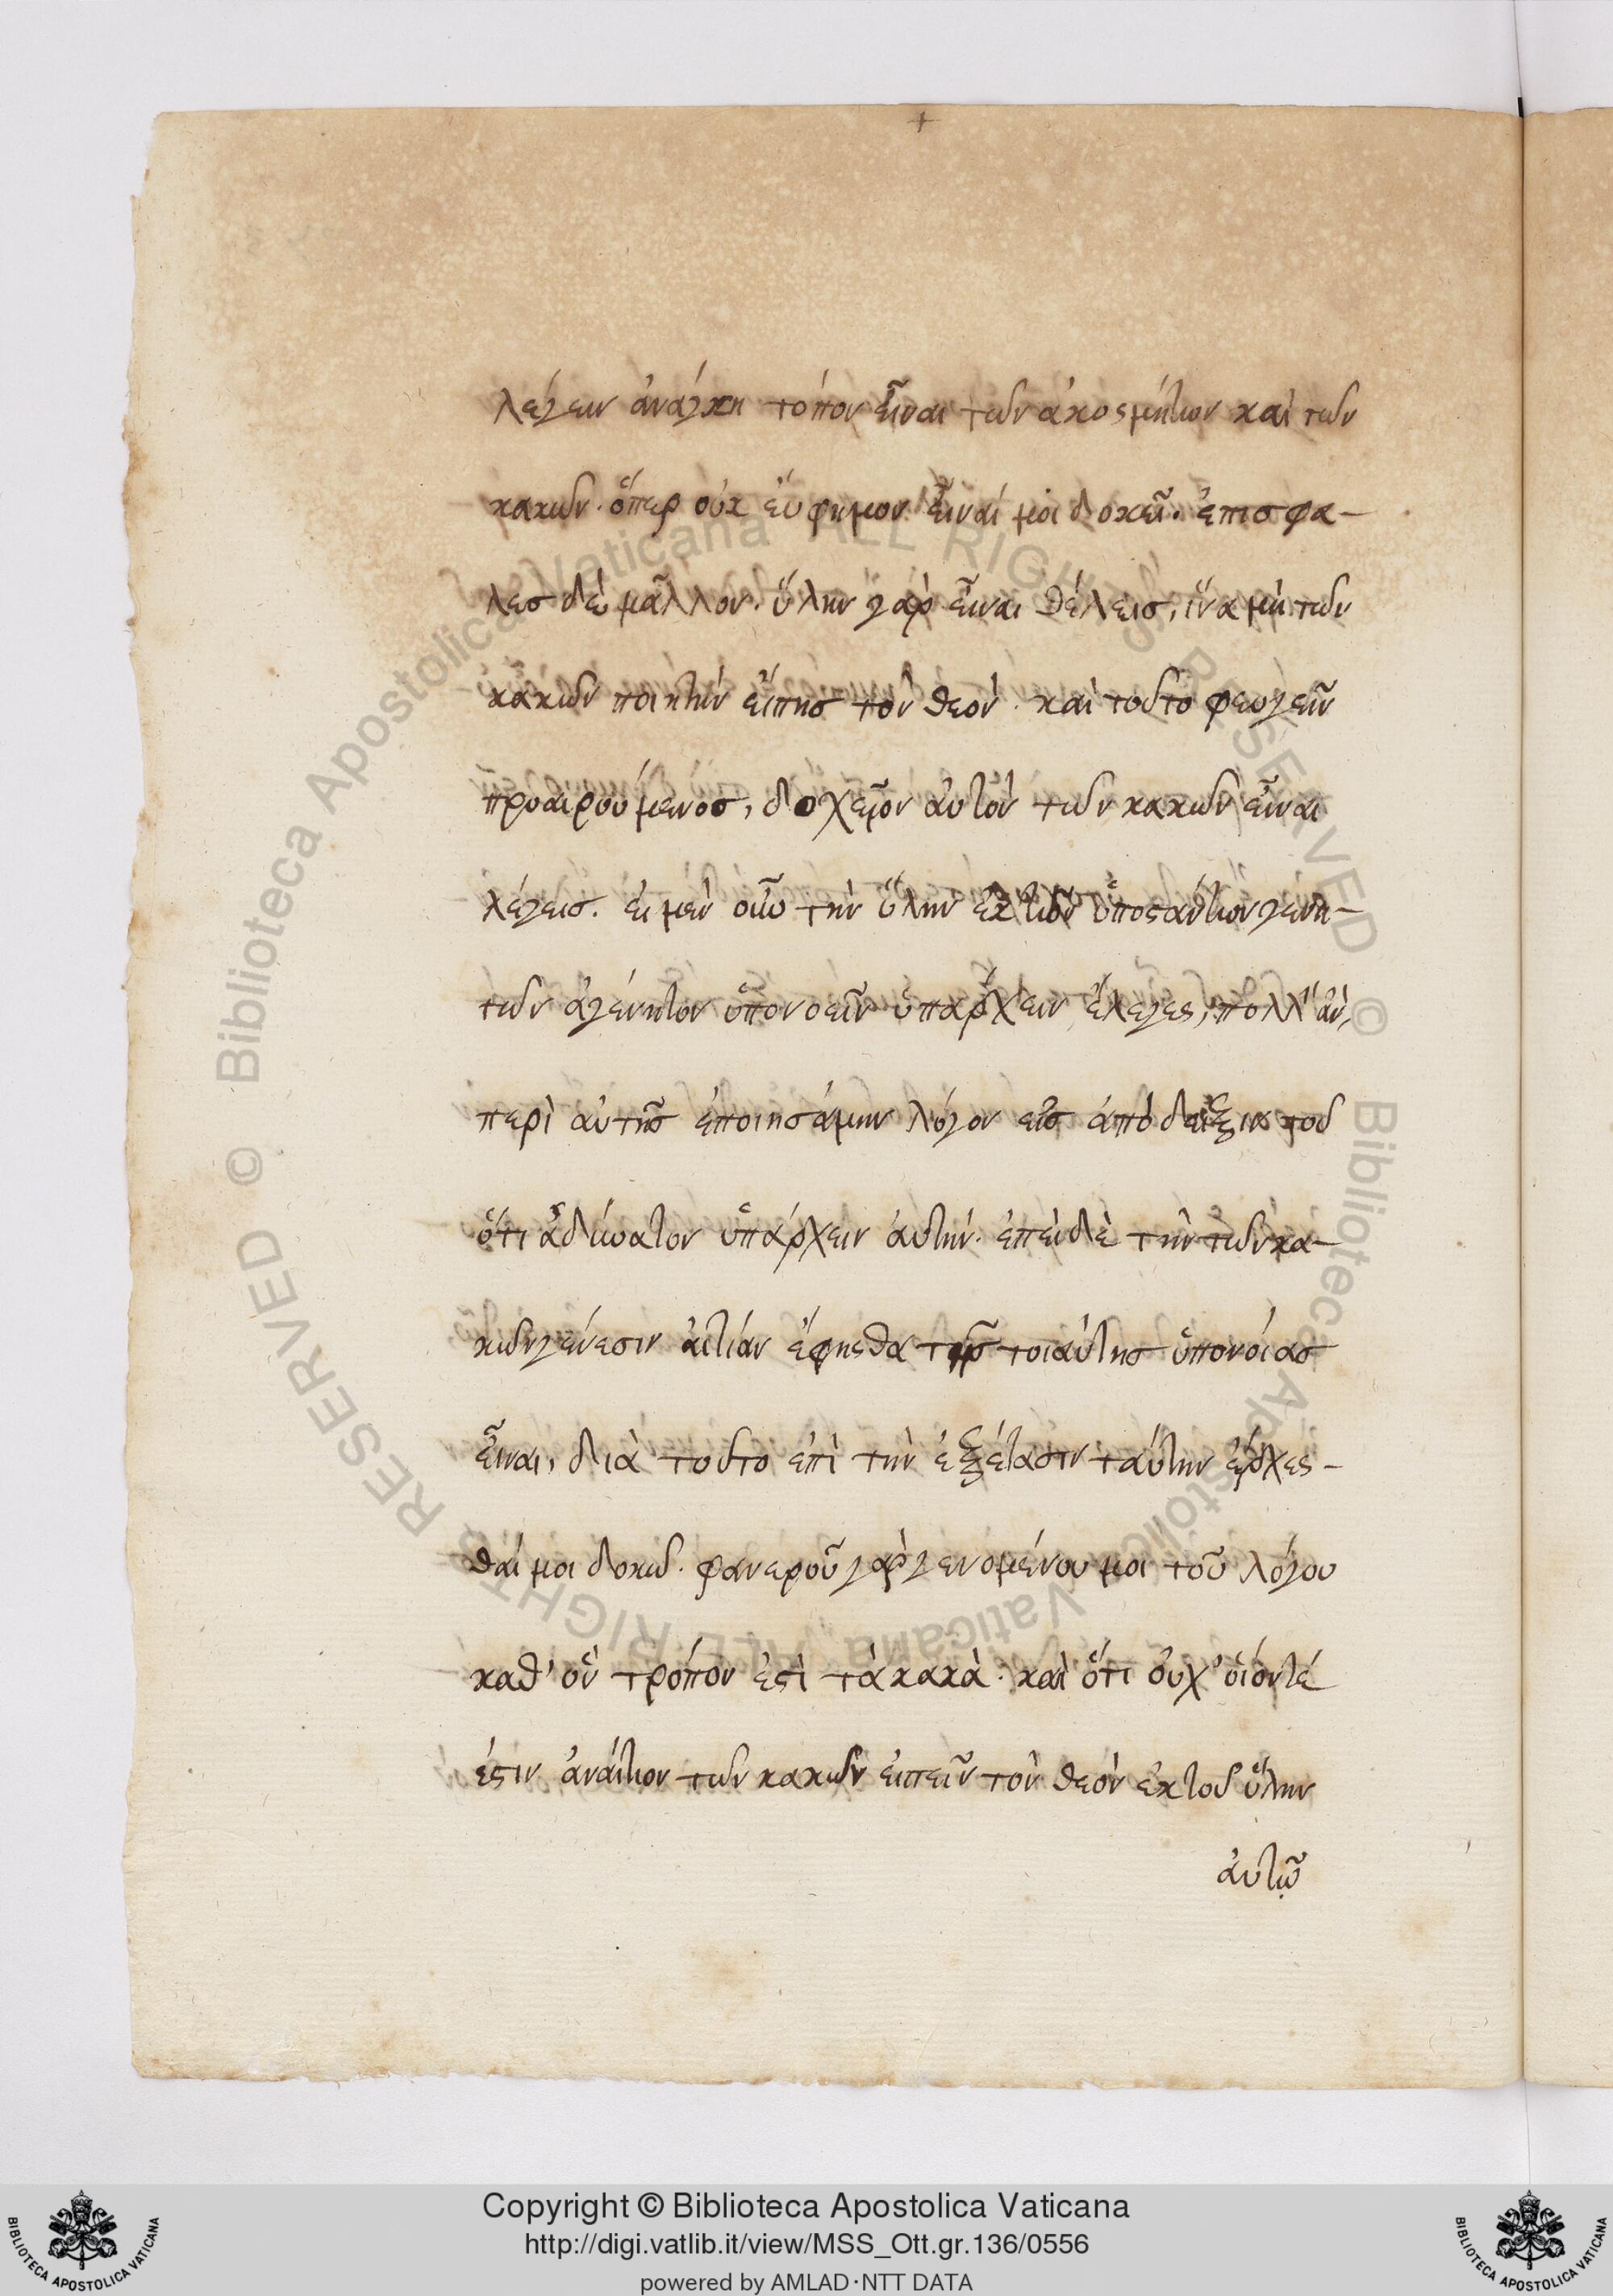 λέγειν ἀνάγκη τόπον εἶναι τῶν ἀκοσμήτων καὶ τῶν
κακῶν. ὅπερ οὐκ εὔφημον εἶναί μοι δοκεῖ. ἐπισφα-
λες δὲ μᾶλλον. ὕλην γὰρ εἶναι θέλεις, ἵνα μὴ τῶν
κακῶν ποιητὴν εἴπῃς τὸν θεόν. καὶ τοῦτο φευγεῖν
προαιρούμενος, δοχεῖον αὐτὸν τῶν κακῶν εἶναι
λέγεις. εἰ μὲν οὖν τὴν ὕλην ἐκ τῶν ὑποστάντων γενη-
τῶν ἀγένητον ὑπονοεῖν ὑπάρχειν ἔλεγες, πολλ' ἂν,
περὶ αὐτῆς ἐποιησάμην λόγον εἰς ἀπόδειξιν τοῦ
ὅτι ἀδύνατον ὑπάρχειν αὐτήν. ἐπεὶ δὲ τὴν τῶν κα-
κῶν γένεσιν αἰτίαν ἔφησθα τῆς τοιαύτης ὑπονοίας
εἶναι, διὰ τοῦτο ἐπὶ τὴν ἐξέτασιν ταύτην ἔρχεσ-
θαί μοι δοκῶ. φανεροῦ γὰρ γενομένου μοι τοῦ λόγου
καθ' ὃν τρόπον ἐστὶ τὰ κακὰ. καὶ ὅτι οὐχ' οἷόντέ
ἐστιν ἀναίτιον τῶν κακῶν εἰπεῖν τὸν θεὸν ἐκ τοῦ ὕλην
αὐτῷ
© Biblioteca Apostolica Vaticana ALL RIGHTS RESERVED © Biblioteca Apostolica Vaticana ALL RIGHTS RESERVED
Copyright © Biblioteca Apostolica Vaticana
http://digi.vatlib.it/view/MSS_Ott.gr.136/0556
powered by AMLAD·NTT DATA
BIBLIOTECA APOSTOLICA VATICANA
BIBLIOTECA APOSTOLICA VATICANA